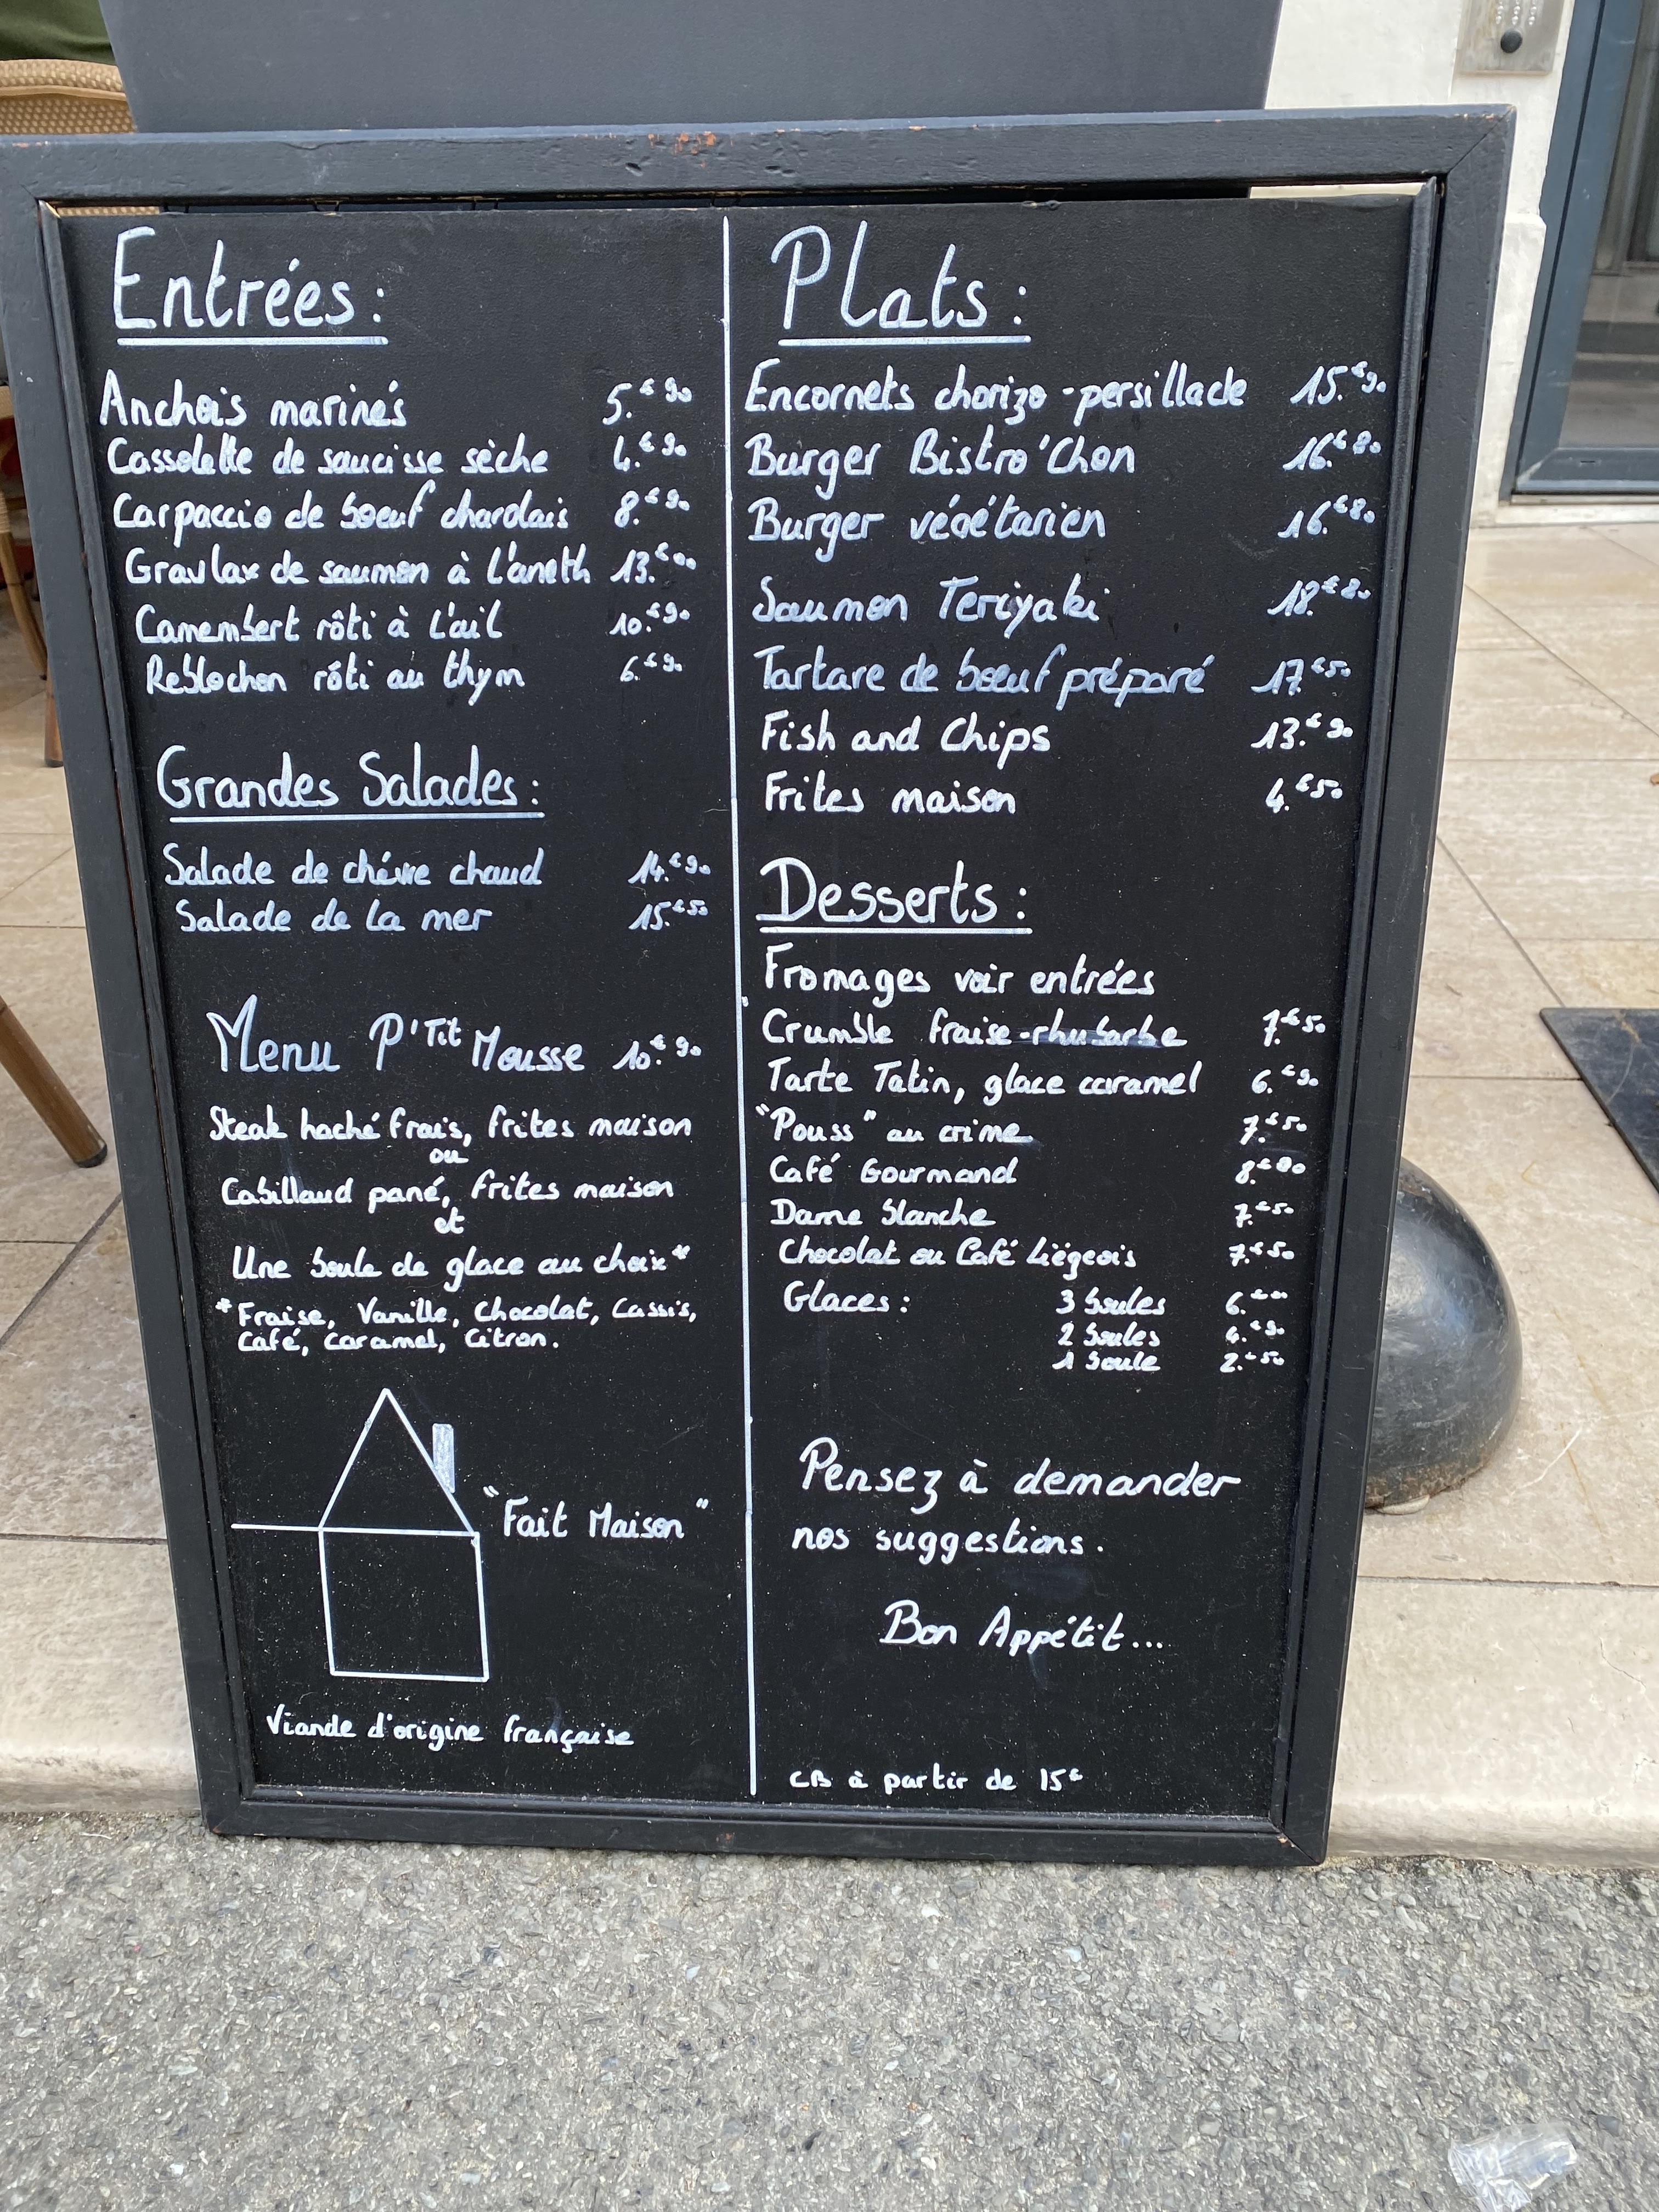 Entrées :
Anchois marinés 5.€90
Cassolette de saucisse sèche 4.€90
Carpaccio de boeuf charolais 8.€90
Gravlax de saumon à l'aneth 13.€00
Camembert rôti à l'ail 10.€90
Reblochon rôti au thym 6.€90
Grandes Salades :
Salade de chèvre chaud 14.€90
Salade de la mer 15.€50
Menu P'Tit Mousse 10.€90
Steak haché frais, frites maison
ou
Cabillaud pané, frites maison
et
Une boule de glace au choix*
*Fraise, Vanille, Chocolat, Cassis,
Café, caramel, Citron.
"Fait Maison"
Viande d'origine française
Plats :
Encornets chorizo-persillade 15.€90
Burger Bistro'Chon 16.€80
Burger végétarien 16.€80
Saumon Teriyaki 18.€80
Tartare de boeuf préparé 17.€50
Fish and Chips 13.€90
Frites maison 4.€50
Desserts :
Fromages voir entrées
Crumble fraise-rhubarbe 7.€50
Tarte Tatin, glace caramel 6.€90
"Pouss" au crime 7.€50
Café Gourmand
Dame blanche 7.€50
Chocolat ou Café Liégeois 7.€50
Glaces : 3 boules 6.€00
2 boules 4.€90
1 boule 2.€50
Pensez à demander
nos suggestions.
Bon Appétit...
CB à partir de 15€